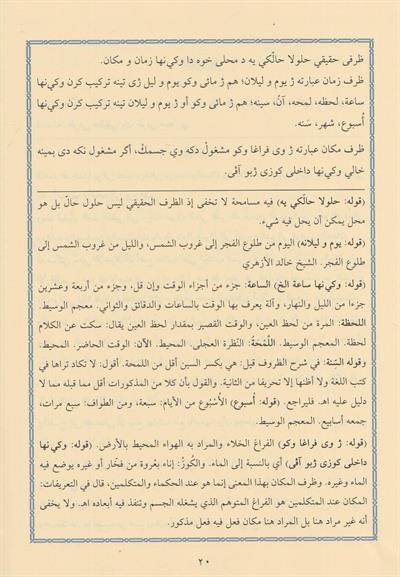 ظرفى حقيقي حلولا حالٚكي يه د محلى خوه دا وكي نها زمان و مكان.
ظرف زمان عبارته ژ يوم و ليلان؛ هم ژ مائى وكو يوم و ليل ژى تينه تركيب كرن وكي نها
ساعة، لحظه، لمحه، آنٚ، سينه؛ هم ژ مائى وكو أو ژ يوم و ليلان تينه تركيب كرن وكي نها
أُسبوع، شهر، سَنه.
ظرف مكان عبارته ژ وى فراغا وكو مشغولٚ دكه وي جسمكٚ، أگر مشغول نكه دى بمينه
خالي وكي نها داخلى كوزى ژبو آڤى.
(قوله: حلولا حالٚكي يه) فيه مسامحة لا تخفى إذ الظرف الحقيقي ليس حلول حالّ بل هو
محل يمكن أن يحل فيه شيء.
(قوله: يوم و ليلانه) اليوم من طلوع الفجر إلى غروب الشمس، والليل من غروب الشمس إلى
طلوع الفجر. الشيخ خالد الأزهري
(قوله: وكي نها ساعة الخ) الساعة: جزء من أجزاء الوقت وإن قل، وجزء من أربعة وعشرين
جزءا من الليل والنهار، وآلة يعرف بها الوقت بالساعات والدقائق والثواني. معجم الوسيط.
اللحظة: المرة من لحظ العين، والوقت القصير بمقدار لحظ العين يقال: سكت عن الكلام
لحظة. المعجم الوسيط. اللَّمْحَةُ: النَّظرة العجلى. المحيط. الآن: الوقت الحاضر. المحيط.
وقوله السِّنة: في شرح الظروف قيل: هي بكسر السين أقل من اللمحة. أقول: لا تكاد تراها في
كتب اللغة ولا أظنها إلا تحريفا من الثانية. والقول بأن كلا من المذكورات أقل مما قبله مما لا
دليل عليه اهـ. فليراجع. (قوله: أسبوع) الأُسْبُوع من الأيام: سبعة، ومن الطواف: سبع مرات،
جمعه أسابيع. المعجم الوسيط.
(قوله: ژ وى فراغا وكو) الفراغ الخلاء والمراد به الهواء المحيط بالأرض. (قوله: وكي نها
داخلى كوزى ژبو آڤى) أي بالنسبة إلى الماء. والكُوزُ: إناء بعُروة من فخّار أو غيره يوضع فيه
الماء وغيره. وظرف المكان بهذا المعنى إنما هو عند الحكماء والمتكلمين، قال في التعريفات:
المكان عند المتكلمين هو الفراغ المتوهم الذي يشغله الجسم وتنفذ فيه أبعاده اهـ. ولا يخفى
أنه غير مراد هنا بل المراد هنا مكان فعل فيه فعل مذكور.
٢٠